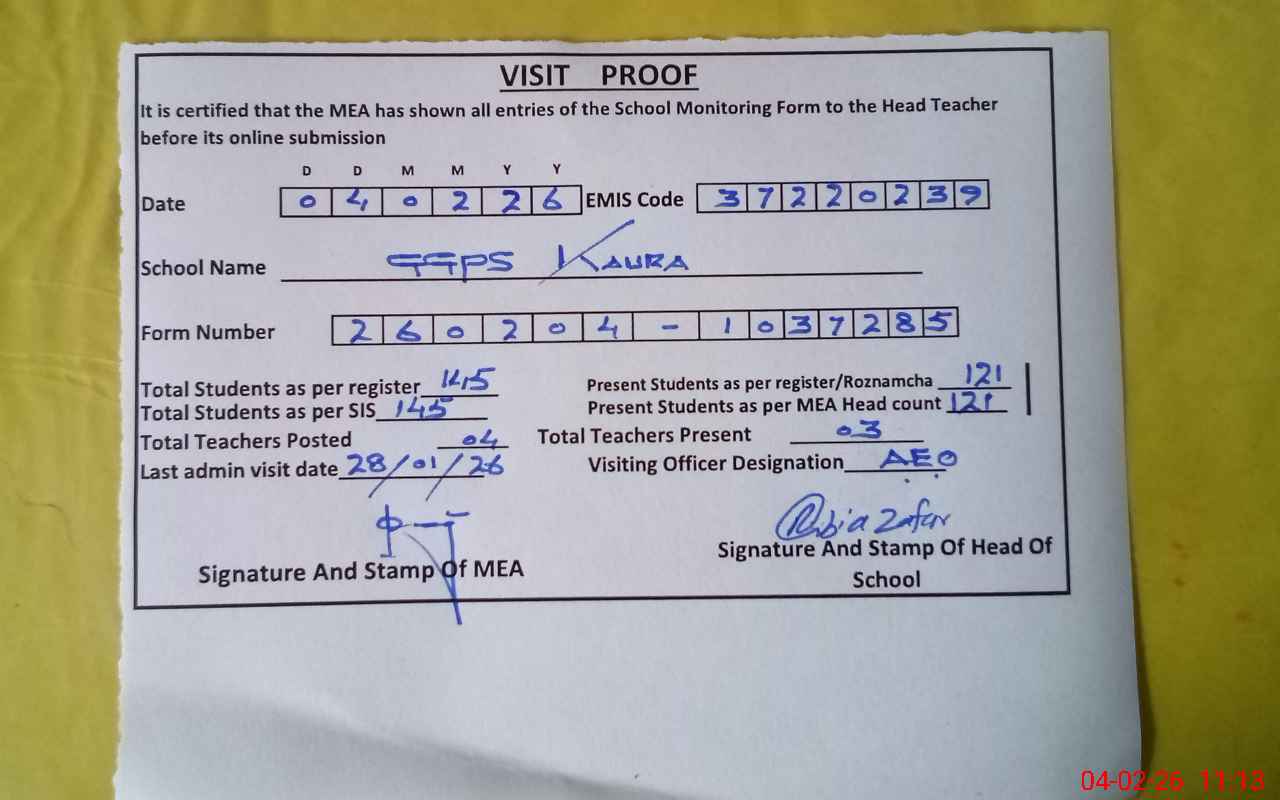 VISIT PROOF
It is certified that the MEA has shown all entries of the School Monitoring Form to the Head Teacher
before its online submission
D D M M Y Y
Date 0 4 0 2 2 6 EMIS Code 3 7 2 2 0 2 3 9
School Name GGPS KAURA
Form Number 2 6 0 2 0 4 - 1 0 3 7 2 8 5
Total Students as per register 145 Present Students as per register/Roznamcha 121
Total Students as per SIS 145 Present Students as per MEA Head count 121
Total Teachers Posted 04 Total Teachers Present 03
Last admin visit date 28/01/26 Visiting Officer Designation AEO
Rubia Zafar
Signature And Stamp Of MEA Signature And Stamp Of Head Of
School
04-02-26 11:13